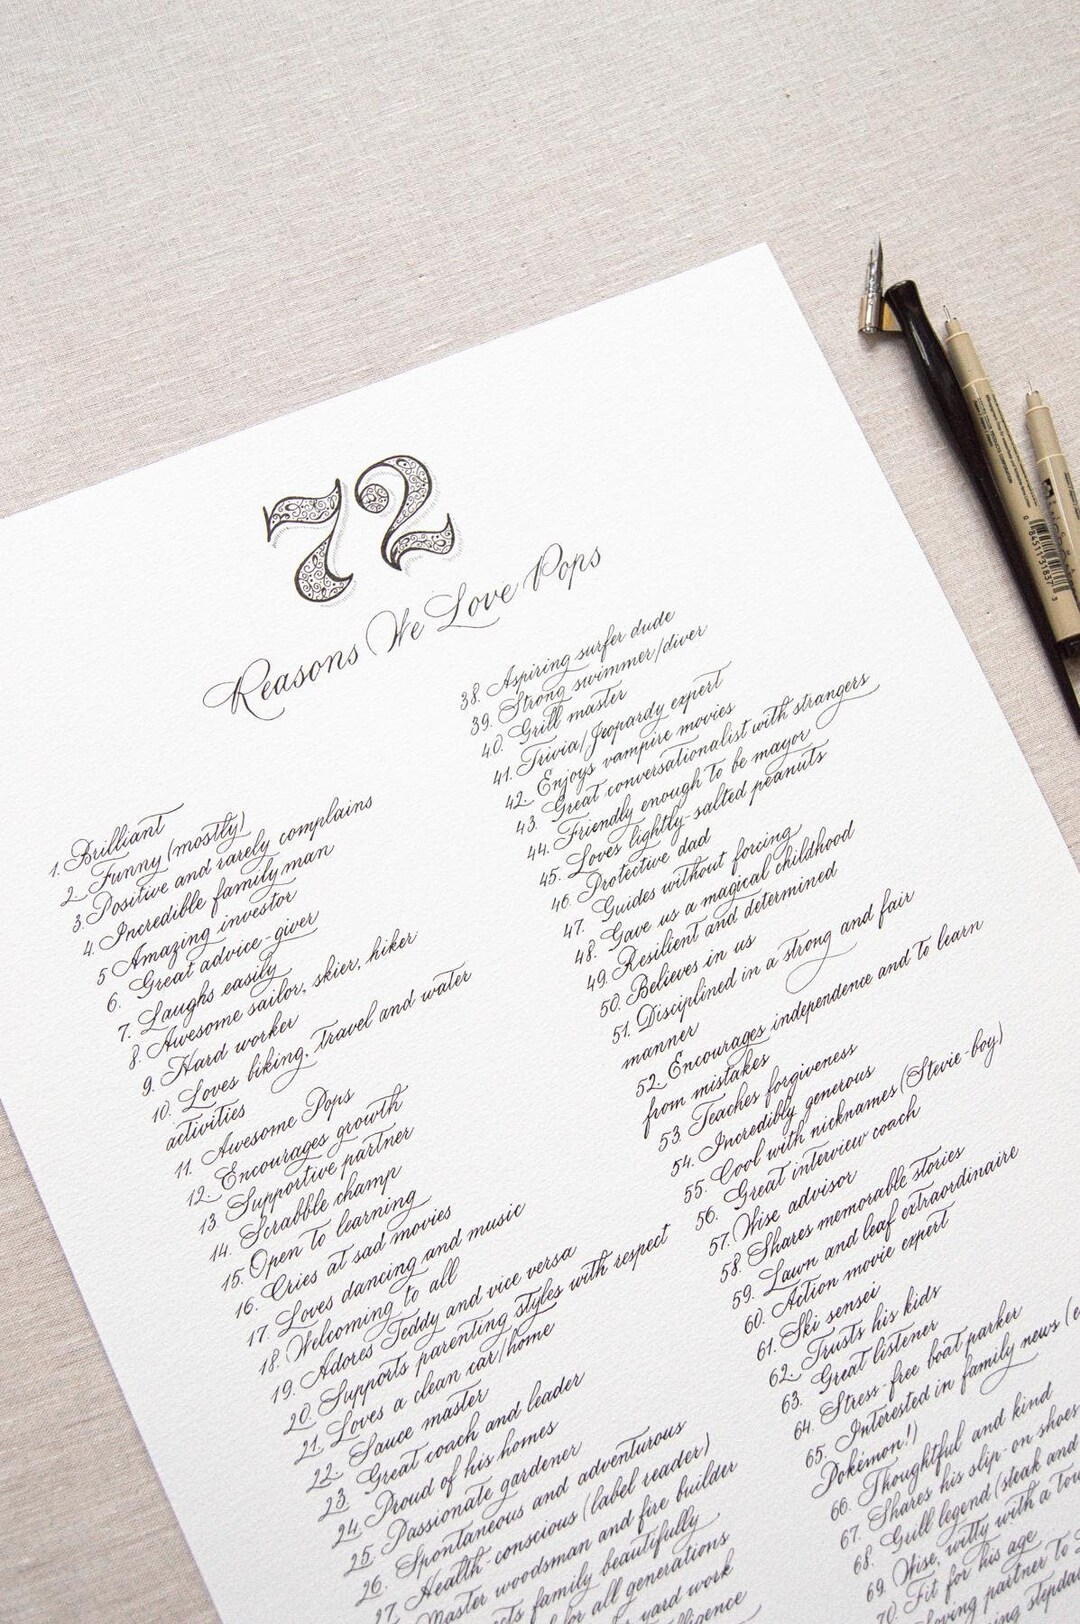 72
Reasons We Love Pops
1. Brilliant
2. Funny (mostly)
3. Positive and rarely complains
4. Incredible family man
5. Amazing investor
6. Great advice-giver
7. Laughs easily
8. Awesome sailor, skier, hiker
9. Hard worker
10. Loves biking, travel and water
activities
11. Awesome Pops
12. Encourages growth
13. Supportive partner
14. Scrabble champ
15. Open to learning
16. Cries at sad movies
17. Loves dancing and music
18. Welcoming to all
19. Adores Teddy and vice versa
20. Supports parenting styles with respect
21. Loves a clean car/home
22. Sauce master
23. Great coach and leader
24. Proud of his homes
25. Passionate gardener
26. Spontaneous and adventurous
27. Health-conscious (label reader)
Master woodsman and fire builder
family beautifully
for all generations
yard work
38. Aspiring surfer dude
39. Strong swimmer/diver
40. Grill master
41. Trivia/Jeopardy expert
42. Enjoys vampire movies
43. Great conversationalist with strangers
44. Friendly enough to be mayor
45. Loves lightly-salted peanuts
46. Protective dad
47. Guides without forcing
48. Gave us a magical childhood
49. Resilient and determined
50. Believes in us
51. Disciplined in a strong and fair
manner
52. Encourages independence and to learn
from mistakes
53. Teaches forgiveness
54. Incredibly generous
55. Cool with nicknames (Stevie-boy)
56. Great interview coach
57. Wise advisor
58. Shares memorable stories
59. Lawn and leaf extraordinaire
60. Action movie expert
61. Ski sensei
62. Trusts his kids
63. Great listener
64. Stress-free boat parker
65. Interested in family news (e
Pokémon!)
66. Thoughtful and kind
67. Shares his slip-on shoes
68. Grill legend (steak and
69. Wise, witty with a
70. Fit for his age
Loving partner to